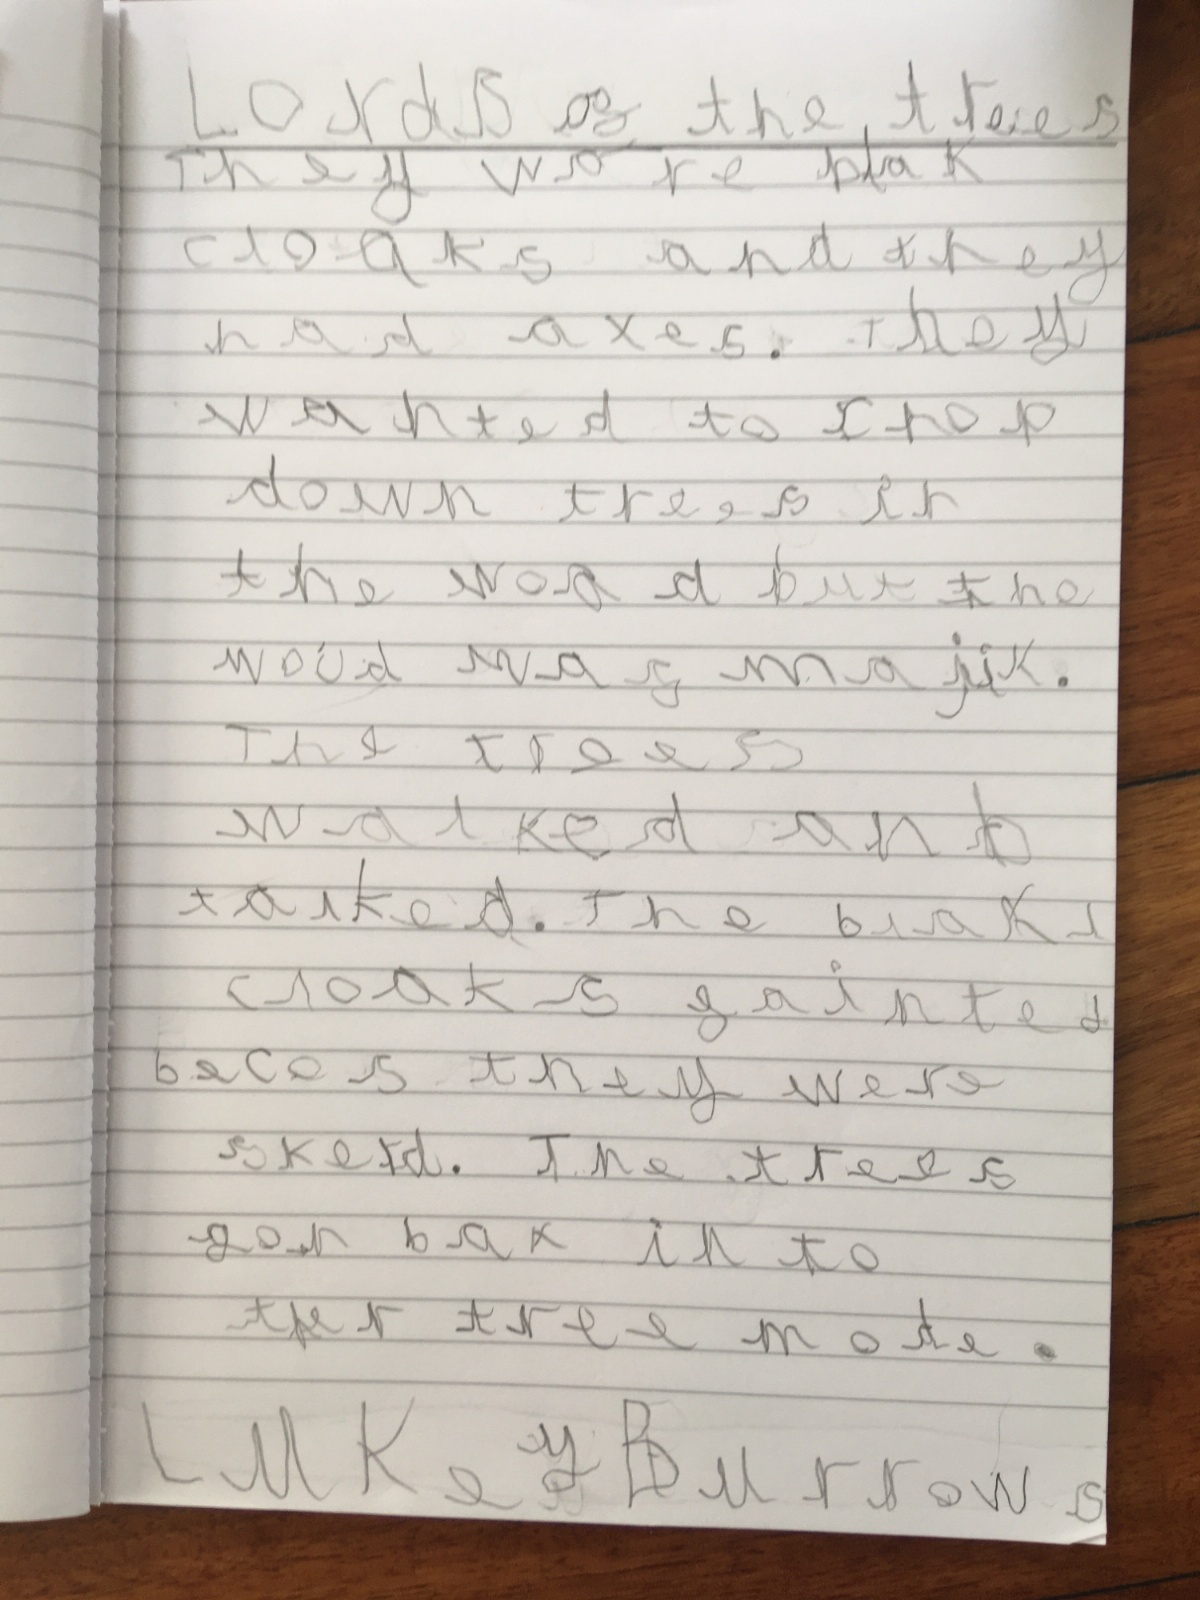 Lords of the trees
They wore blak
cloaks and they
had axes. They
wanted to chop
down trees in
the wood but the
woud was majik.
The trees
walked and
talked. The blak
cloaks fainted
becos they were
skerd. The trees
gon bak in to
ther tree mode.
LuKey Burrows